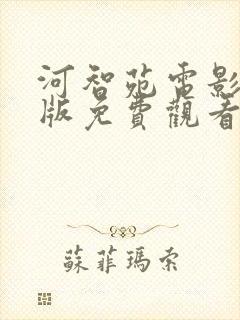 河智苑電影
版免費觀看
蘇菲瑪索